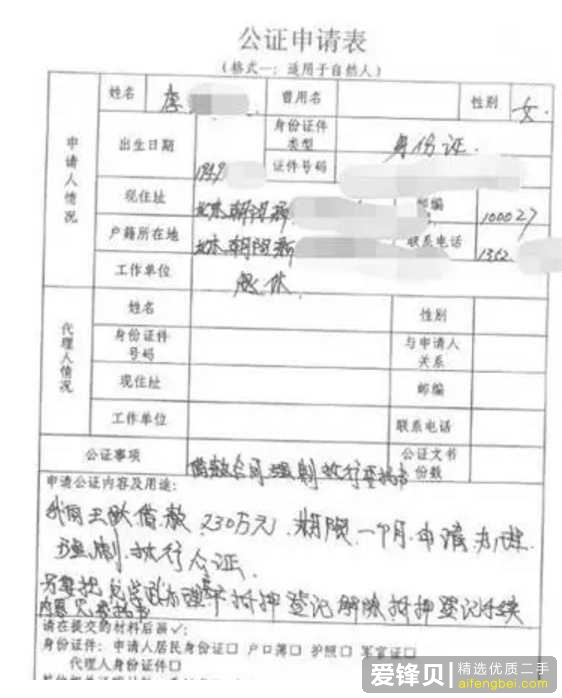 公证申请表
(格式一：适用于自然人)
申请人情况
姓名 李 曾用名 性别 女
出生日期 1949 身份证件类型 身份证
证件号码
现住址 北京朝阳新 邮编 100027
户籍所在地 北京朝阳新 联系电话 1362
工作单位 退休
代理人情况
姓名 性别
身份证件号码 与申请人关系
现住址 邮编
工作单位 联系电话
公证事项 借款合同 强制执行 委托书 公证文书份数
申请公证内容及用途：
我向王 借款 230万元 期限一个月 申请办理
强制执行公证
另委托 办理 抵押登记 解除抵押登记手续
内容见委托书
请在提交的材料后画√：
身份证件：申请人居民身份证□ 户口簿□ 护照□ 军官证□
代理人身份证件□
爱锋贝 精选优质二手
aifengbei.com